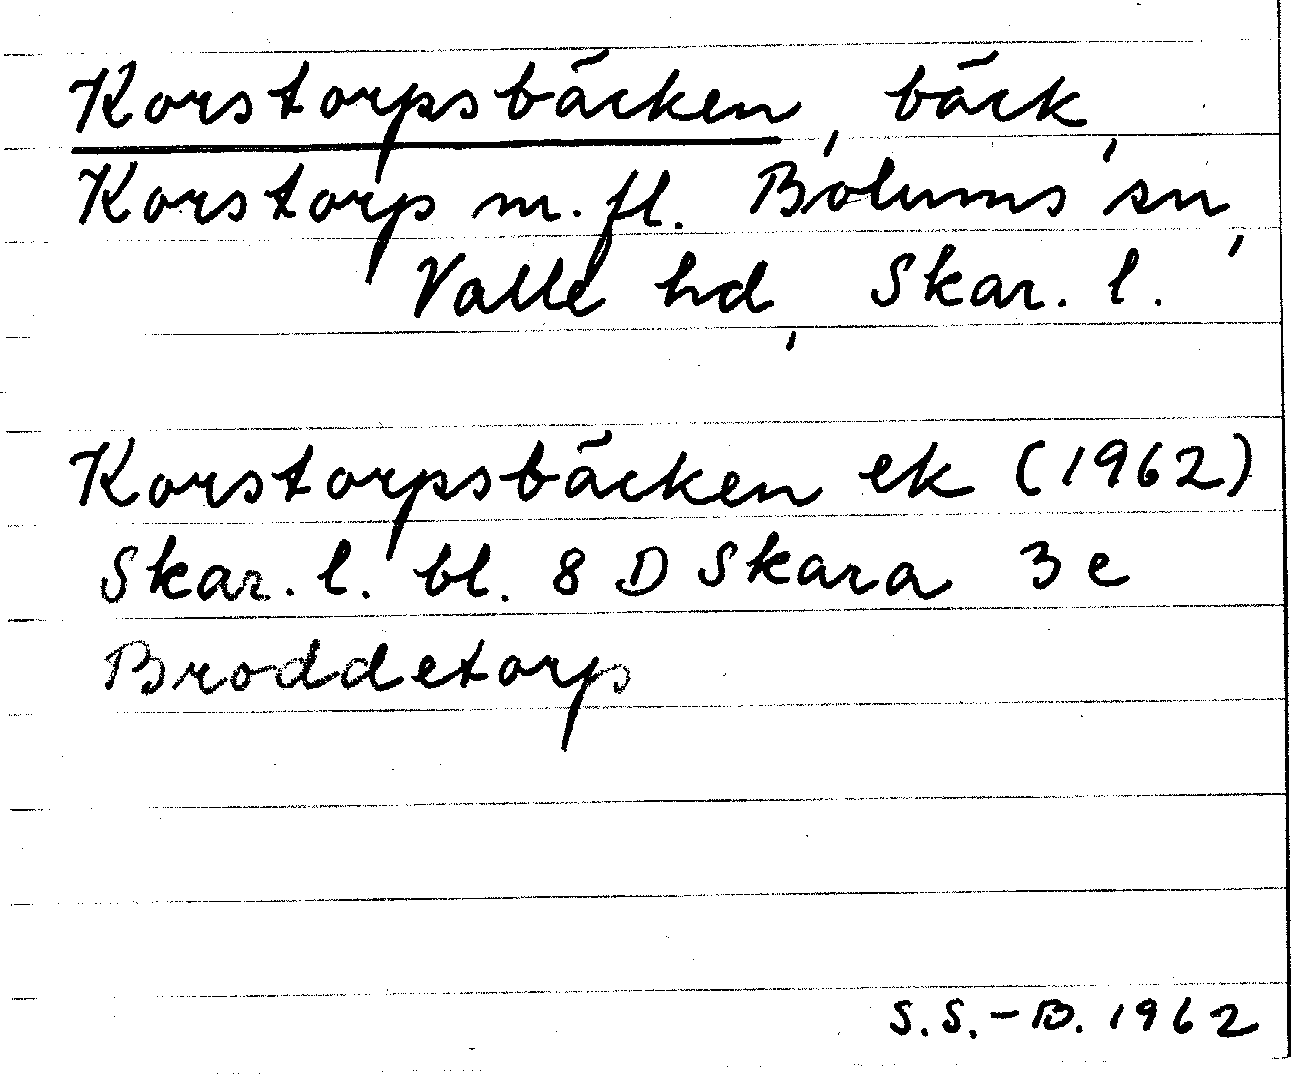 Korstorpsbäcken, bäck,
Korstorp m. fl. Bolums sn,
Valle hd, Skar. l.
Korstorpsbäcken ek (1962)
Skar. l. bl. 8 D Skara 3 e
Broddetorp
S. S.-B. 1962